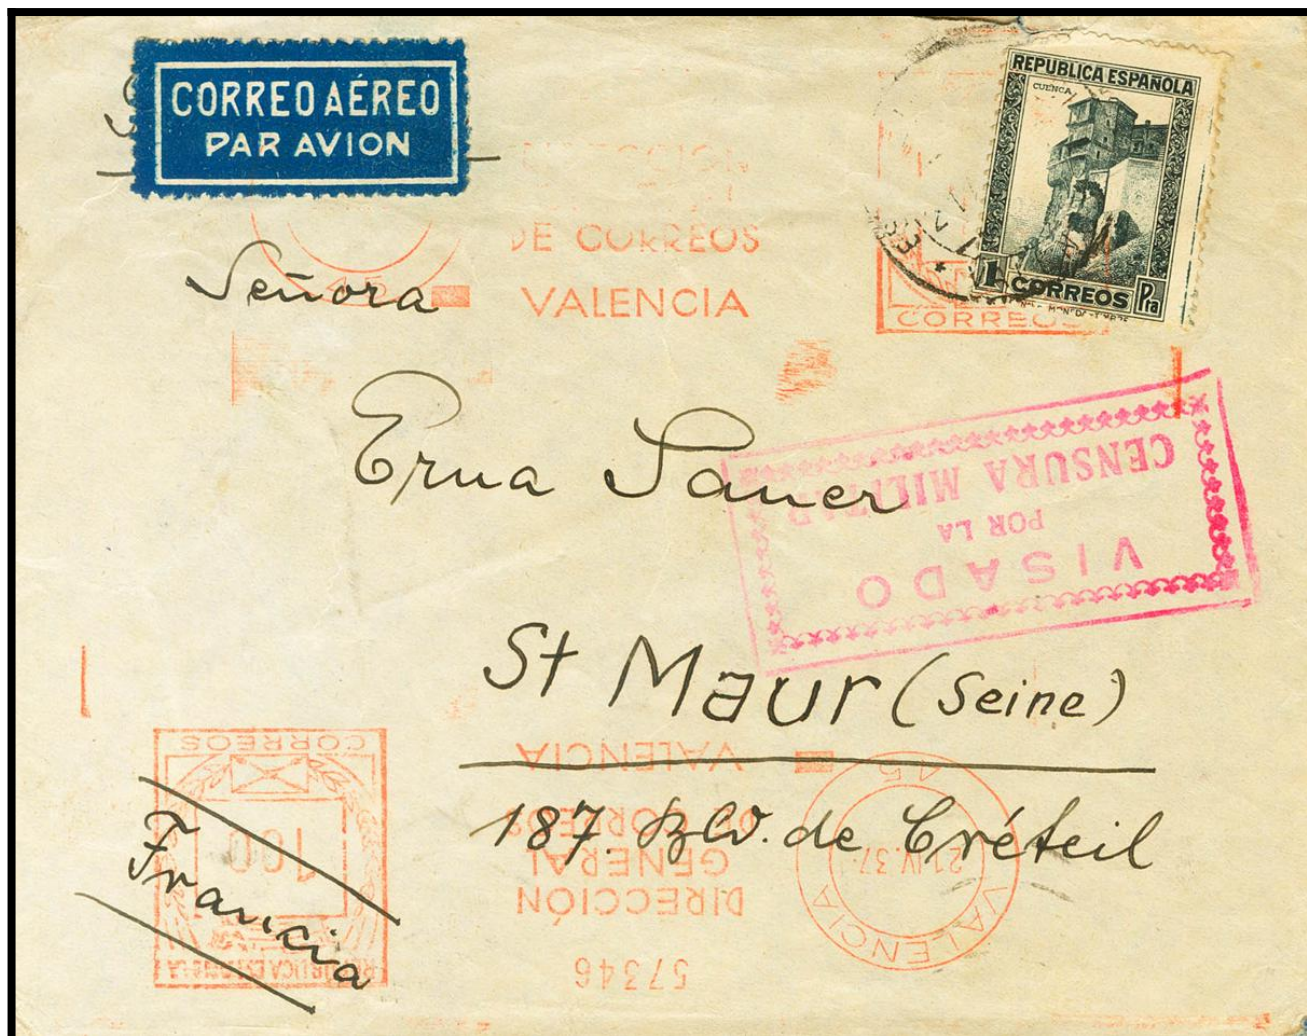 CORREO AÉREO
PAR AVION
REPUBLICA ESPAÑOLA
CUENCA
1 CORREOS Pta
DE CORREOS
VALENCIA
CORREOS
Señora
Erna Sauer
VISADO
POR LA
CENSURA MILITAR
St Maur (Seine)
187. Blv. de Créteil
Francia
57346
DIRECCIÓN
GENERAL
DE CORREOS
VALENCIA
VALENCIA
21.IV.37
15
100
CORREOS